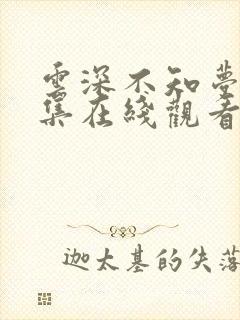 雲深不知夢
集在綫觀看
迦太基的失落